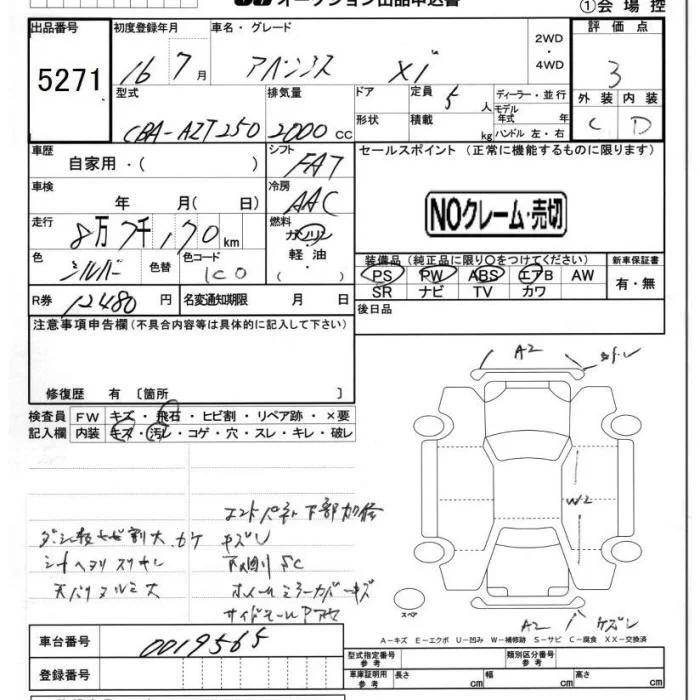 オークション出品申込書
①会場控
出品番号
5271
初度登録年月
16 7月
車名・グレード
アベンシス Xi
2WD
・
4WD
評価点
3
外装 内装
C D
型式
CBA-AZT250
排気量
2000 cc
ドア
形状
定員 5人
積載 kg
ディーラー・並行
モデル年式 年
ハンドル 左・右
車歴
自家用・( )
シフト
FAT
セールスポイント (正常に機能するものに限ります)
NOクレーム・売切
車検
年 月( 日)
冷房
AAC
走行
8万7千170km
燃料
ガソリン
軽油
( )
色
シルバー
色替
色コード
1C0
装備品(純正品に限り○をつけてください)
PS PW ABS エアB AW
SR ナビ TV カワ
新車保証書
有・無
R券 12480円
名変通知期限 月 日
後日品
注意事項申告欄(不具合内容等は具体的に記入して下さい)
修復歴 有 〔箇所 〕
検査員
記入欄
FW キズ・飛石・ヒビ割・リペア跡・×要
内装 キズ・汚レ・コゲ・穴・スレ・キレ・破レ
A2
W2
A2
スペア
エンドパネル下部カ修
キズレ
シートヘタリ スリキレ
下回り SC
ホイールミラーカバーキズ
A-キズ E-エクボ U-凹み W-補修跡 S-サビ C-腐食 XX-交換済
車台番号
0019565
登録番号
型式指定番号
参考
類別区分番号
参考
車庫証明用
参考
長さ cm
幅 cm
高さ cm